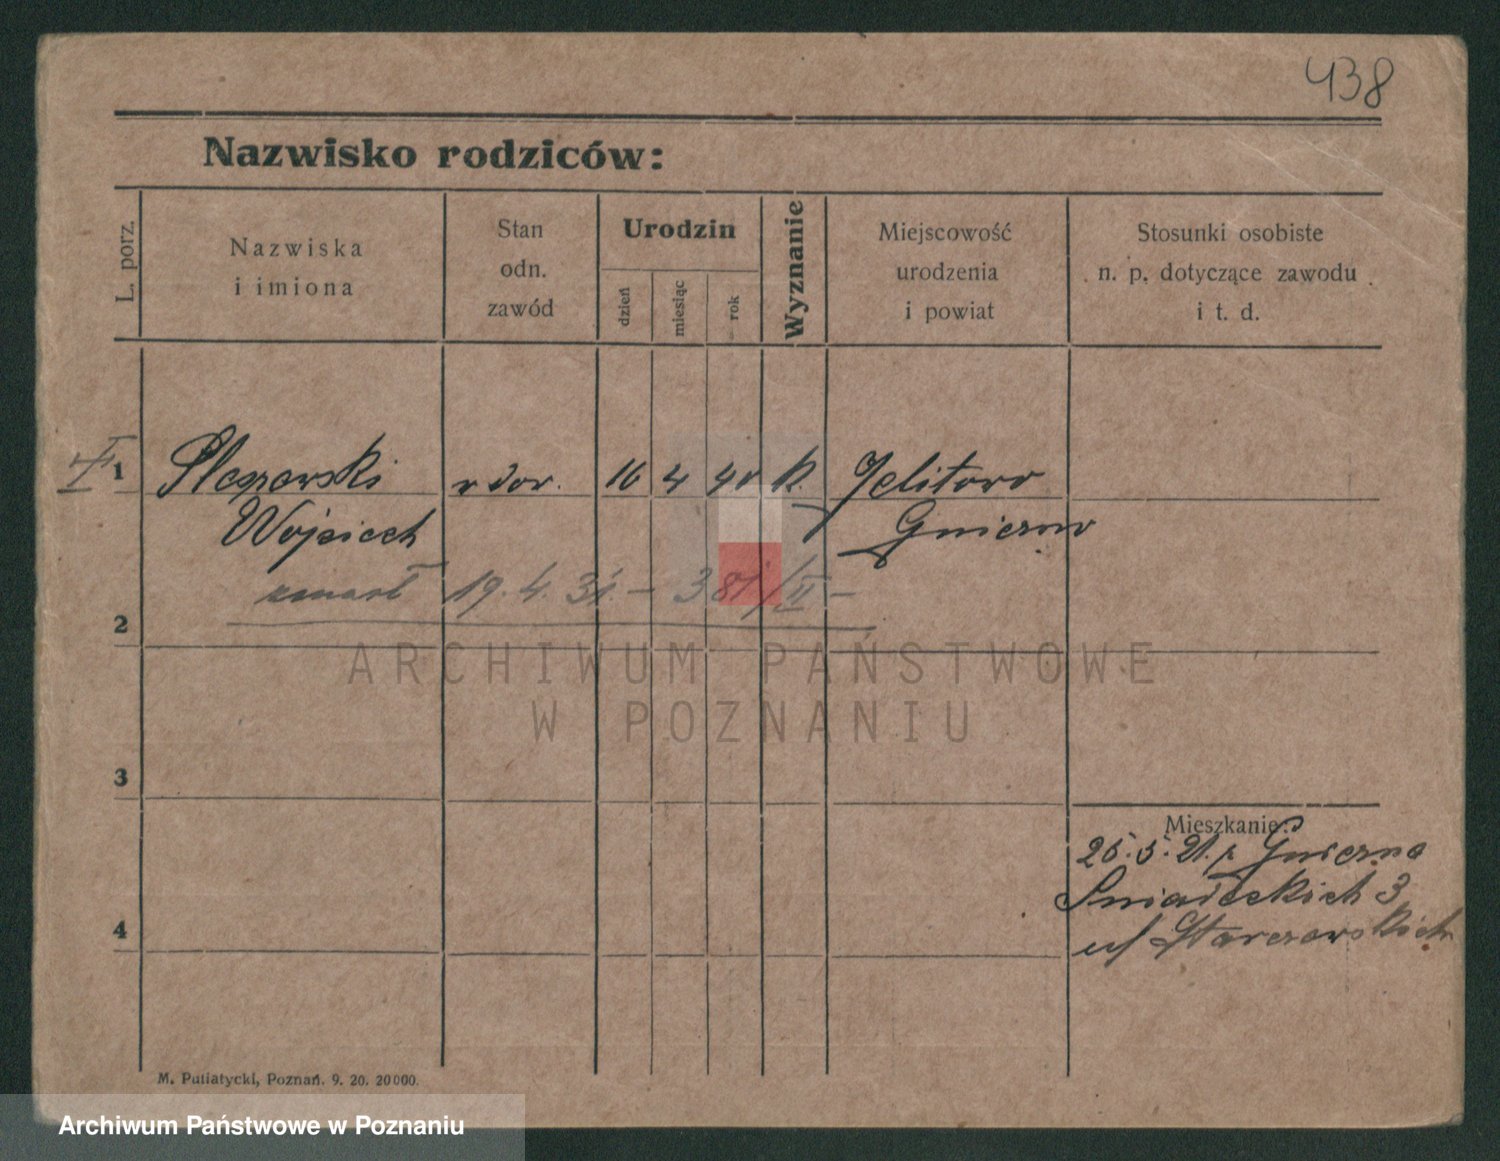 438
Nazwisko rodziców:
L. porz.
Nazwiska
i imiona
Stan
odn.
zawód
Urodzin
dzień
miesiąc
rok
Wyznanie
Miejscowość
urodzenia
i powiat
Stosunki osobiste
n. p. dotyczące zawodu
i t. d.
1
wdow. 16 4 40 k. Jelitowo
Wojciech Gniezno
zmarł 19. 4. 31. – 381/II –
2
ARCHIWUM PAŃSTWOWE
W POZNANIU
3
Mieszkanie:
25. 5. 21. z Gniezna
Śniadeckich 3
4
u/
M. Putiatycki, Poznań. 9. 20. 20000.
Archiwum Państwowe w Poznaniu